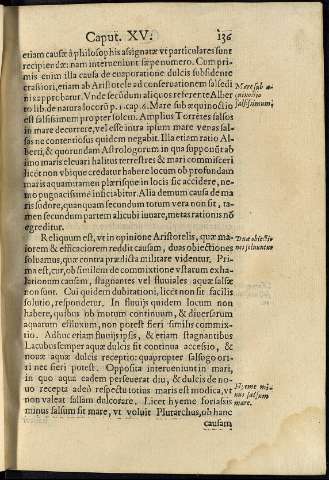 Caput. XV.
136
etiam causæ à philosophis assignatæ vt particulares sunt
recipiendæ: nam interueniunt sæpe numero. Cum pri-
mis enim illa causa de euaporatione dulcis subsidente
crassiori, etiam ab Aristotele ad conseruationem salsedi
nis approbatur. Vnde secũdum aliquos referente Alber
to lib. de natura locorũ p. 1. cap. 6. Mare sub æquinoctio
est salsissimum propter solem. Amplius Torrẽtes salsos
in mare decurrere, vel esse intra ipsum mare venas sal-
sas ne contentiosus quidem negabit. Illa etiam ratio Al-
berti, & quorundam Astrologorum in qua supponũt ab
imo maris eleuari halitus terrestres & mari commisceri
licet non vbique credatur habere locum ob profundam
maris aquam tamen plærisque in locis sic accidere, ne-
mo pugnaciter inficiabitur. Alia demum causa de ma-
ris sudore, quanquam secundum totum vera non sit, ta-
men secundum partem alicubi iuuare, metas rationis nõ
egreditur.
Mare sub æ-
quinoctio
salsissimum;
Reliquum est, vt in opinione Aristotelis, quæ ma-
iorem & efficaciorem reddit causam, duas obiectiones
soluamus, quæ contra prædicta militare videntur. Pri-
ma est, cur, ob similem de commixtione vstarum exha-
lationum causam, stagnantes vel fluuiales aquæ salsæ
non sunt. Cui quidem dubitationi, licet non sit facilis
solutio, respondetur. In fluuijs quidem locum non
habere, quibus ob motum continuum, & diuersarum
aquarum effluxum, non potest fieri similis commix-
tio. Adhoc etiam fluuijs ipsis, & etiam stagnantibus
Lacubus semper aquæ dulcis fit continua accesio, &
nouæ aquæ dulcis receptio: quapropter salsugo ori-
ri nec fieri potest. Opposita interueniunt in mari,
in quo aqua eadem perseuerat diu, & dulcis de no-
uo recepta adeò respectu totius maris est modica, vt
non valeat salsam dulcorare. Licet hyeme forіasiis
minus salsum sit mare, vt voluit Plutarchus, ob hanc
Duæ obiectio
nes soluuntur
Hyeme mi-
nus salsum
mare.
causam